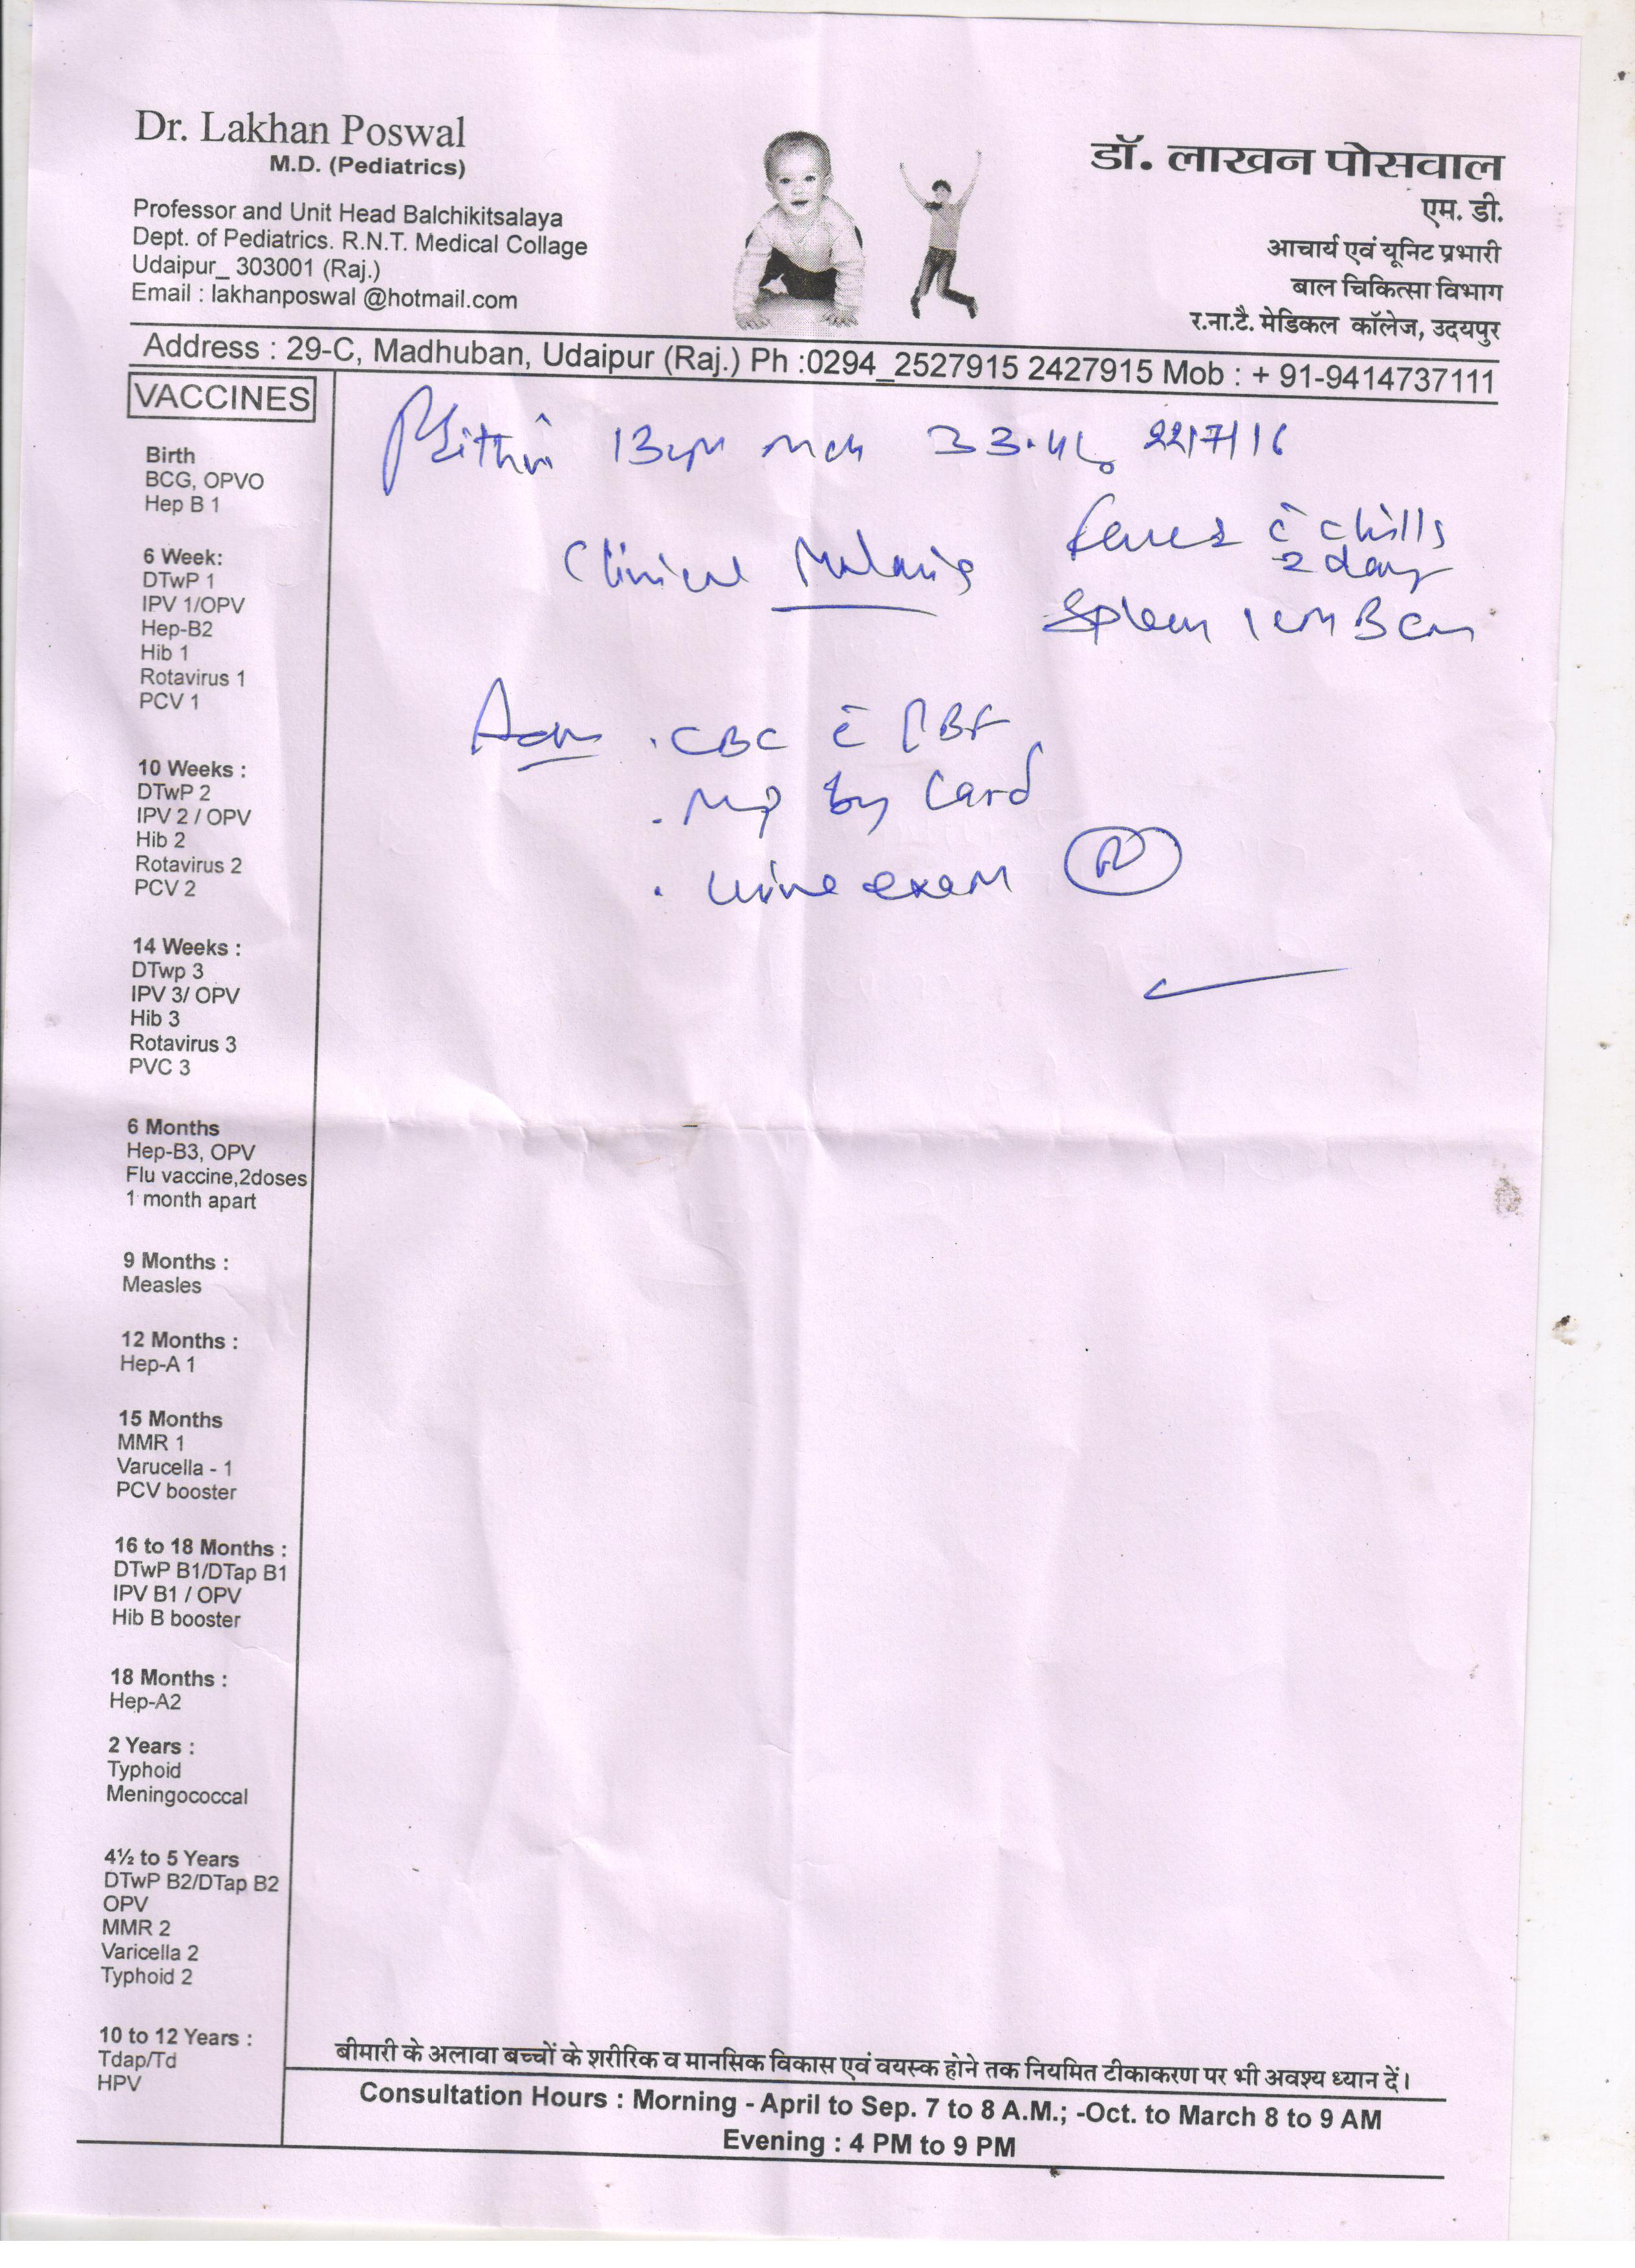 Dr. Lakhan Poswal
M.D. (Pediatrics)
Professor and Unit Head Balchikitsalaya
Dept. of Pediatrics. R.N.T. Medical Collage
Udaipur_ 303001 (Raj.)
Email : lakhanposwal @hotmail.com
डॉ. लाखन पोसवाल
एम. डी.
आचार्य एवं यूनिट प्रभारी
बाल चिकित्सा विभाग
र.ना.टै. मेडिकल कॉलेज, उदयपुर
Address : 29-C, Madhuban, Udaipur (Raj.) Ph :0294_2527915 2427915 Mob : + 91-9414737111
VACCINES
Birth
BCG, OPVO
Hep B 1
6 Week:
DTwP 1
IPV 1/OPV
Hep-B2
Hib 1
Rotavirus 1
PCV 1
10 Weeks :
DTwP 2
IPV 2 / OPV
Hib 2
Rotavirus 2
PCV 2
14 Weeks :
DTwp 3
IPV 3/ OPV
Hib 3
Rotavirus 3
PVC 3
6 Months
Hep-B3, OPV
Flu vaccine,2doses
1 month apart
9 Months :
Measles
12 Months :
Hep-A 1
15 Months
MMR 1
Varucella - 1
PCV booster
16 to 18 Months :
DTwP B1/DTap B1
IPV B1 / OPV
Hib B booster
18 Months :
Hep-A2
2 Years :
Typhoid
Meningococcal
4½ to 5 Years
DTwP B2/DTap B2
OPV
MMR 2
Varicella 2
Typhoid 2
10 to 12 Years :
Tdap/Td
HPV
22/7/16
Clinical Malaria
Fever c̄ chills
2 day
Spleen 1 cm BCM
. CBC c̄ PBF
. MP by Card
. Urine exam
बीमारी के अलावा बच्चों के शरीरिक व मानसिक विकास एवं वयस्क होने तक नियमित टीकाकरण पर भी अवश्य ध्यान दें।
Consultation Hours : Morning - April to Sep. 7 to 8 A.M.; -Oct. to March 8 to 9 AM
Evening : 4 PM to 9 PM